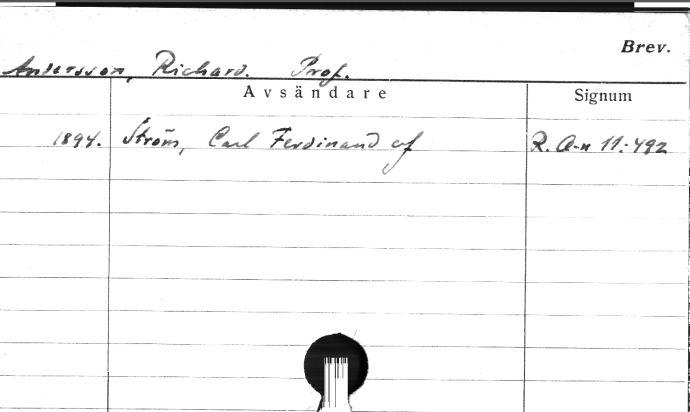 Brev.
Andersson, Richard. Prof.
Avsändare Signum
1894. Ström, Carl Ferdinand af R. A-n 11:492